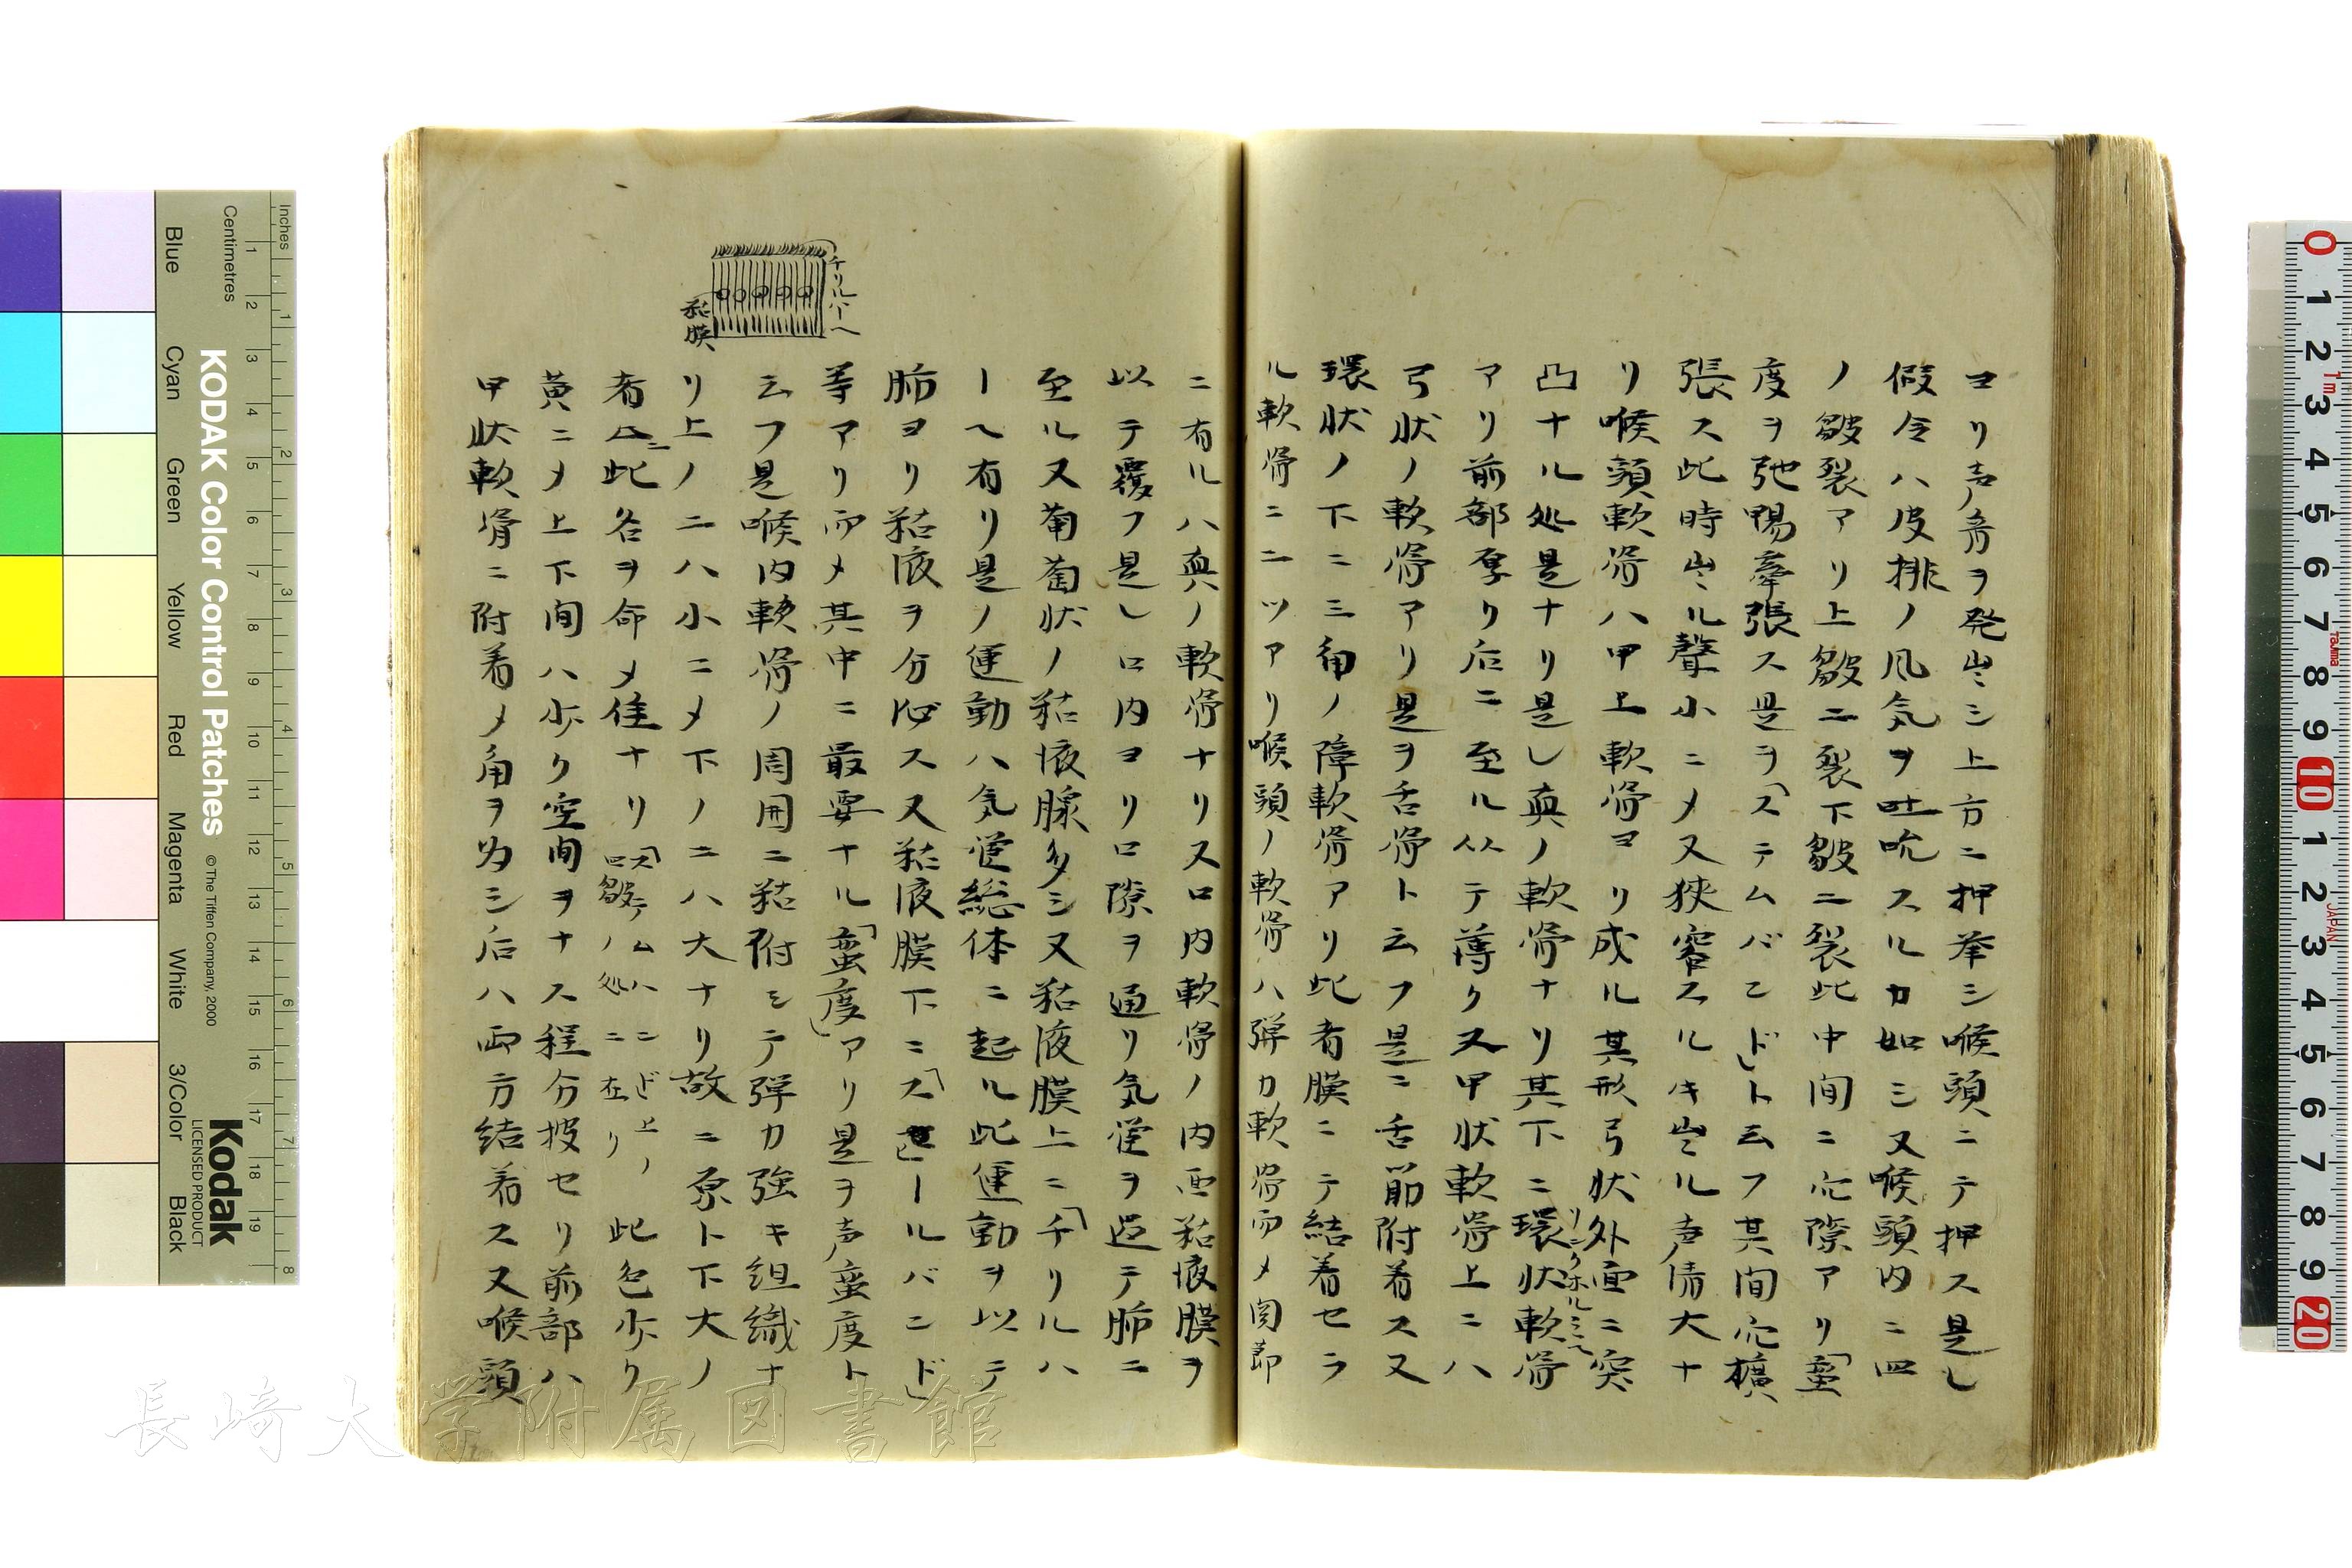 ヨリ声音ヲ発出シ上方ニ押挙シ喉頭ニテ押ス是レ
假令ハ皮排ノ風気ヲ吐吮スルカ如シ又喉頭内ニ四
ノ皺裂アリ上皺二裂下皺二裂此中間ニ空隙アリ「蛮
度ヲ弛張牽張ス是ヲ「ステムバンド」ト云フ其間空擴
張ス此時出ル聲小ニメ又狭窄スルキ出ル声清大ナ
リ喉頭軟骨ハ甲上軟骨ヨリ成ル其形弓状外面ニ突
凸ナル処是ナリ是レ真ノ軟骨ナリ其下ニ環状軟骨
アリ前部厚リ后ニ至ル以テ薄ク又甲状軟骨上ニハ
弓状ノ軟骨アリ是ヲ舌骨ト云フ是ニ舌筋附着ス又
環状ノ下ニ三角ノ障軟骨アリ此者膜ニテ結着セラ
ル軟骨ニニツアリ喉頭ノ軟骨ハ弾力軟骨而メ関節
ニ有ルハ真ノ軟骨ナリス口内軟骨ノ内面粘液膜ヲ
以テ覆フ是レ口内ヨリ口隙ヲ通リ気管ヲ過テ肺ニ
至ル又葡萄状ノ粘液腺多シ又粘液膜上ニ「チリルハ
ーヘ有リ是ノ運動ハ気管総体ニ起ル此運動ヲ以テ
肺ヨリ粘液ヲ分泌ス又粘液膜下ニ「スセールバンド」
等アリ而メ其中ニ最要ナル「蛮度」アリ是ヲ声蛮度ト
云フ是喉内軟骨ノ周囲ニ粘附シテ弾力強キ組織ナ
リ上ノ二ハ小ニメ下ノ二ハ大ナリ故ニ原ト下大ノ
者ニ此名ヲ命メ佳ナリ
此色少ク
黄ニメ上下間ハ少ク空間ヲナス程分披セリ前部ハ
甲状軟骨ニ附着メ角ヲ為シ后ハ両方結着ス又喉頭
チリルハーヘ
粘膜
KODAK Color Control Patches
© The Tiffen Company, 2000
Kodak
LICENSED PRODUCT
Inches
Centimetres
Blue
Cyan
Green
Yellow
Red
Magenta
White
3/Color
Black
1 2 3 4 5 6 7 8 9 10 11 12 13 14 15 16 17 18 19
1 2 3 4 5 6 7 8
0 1 2 3 4 5 6 7 8 9 10 1 2 3 4 5 6 7 8 9 20
1m
Tajima
JAPAN
長崎大学附属図書館